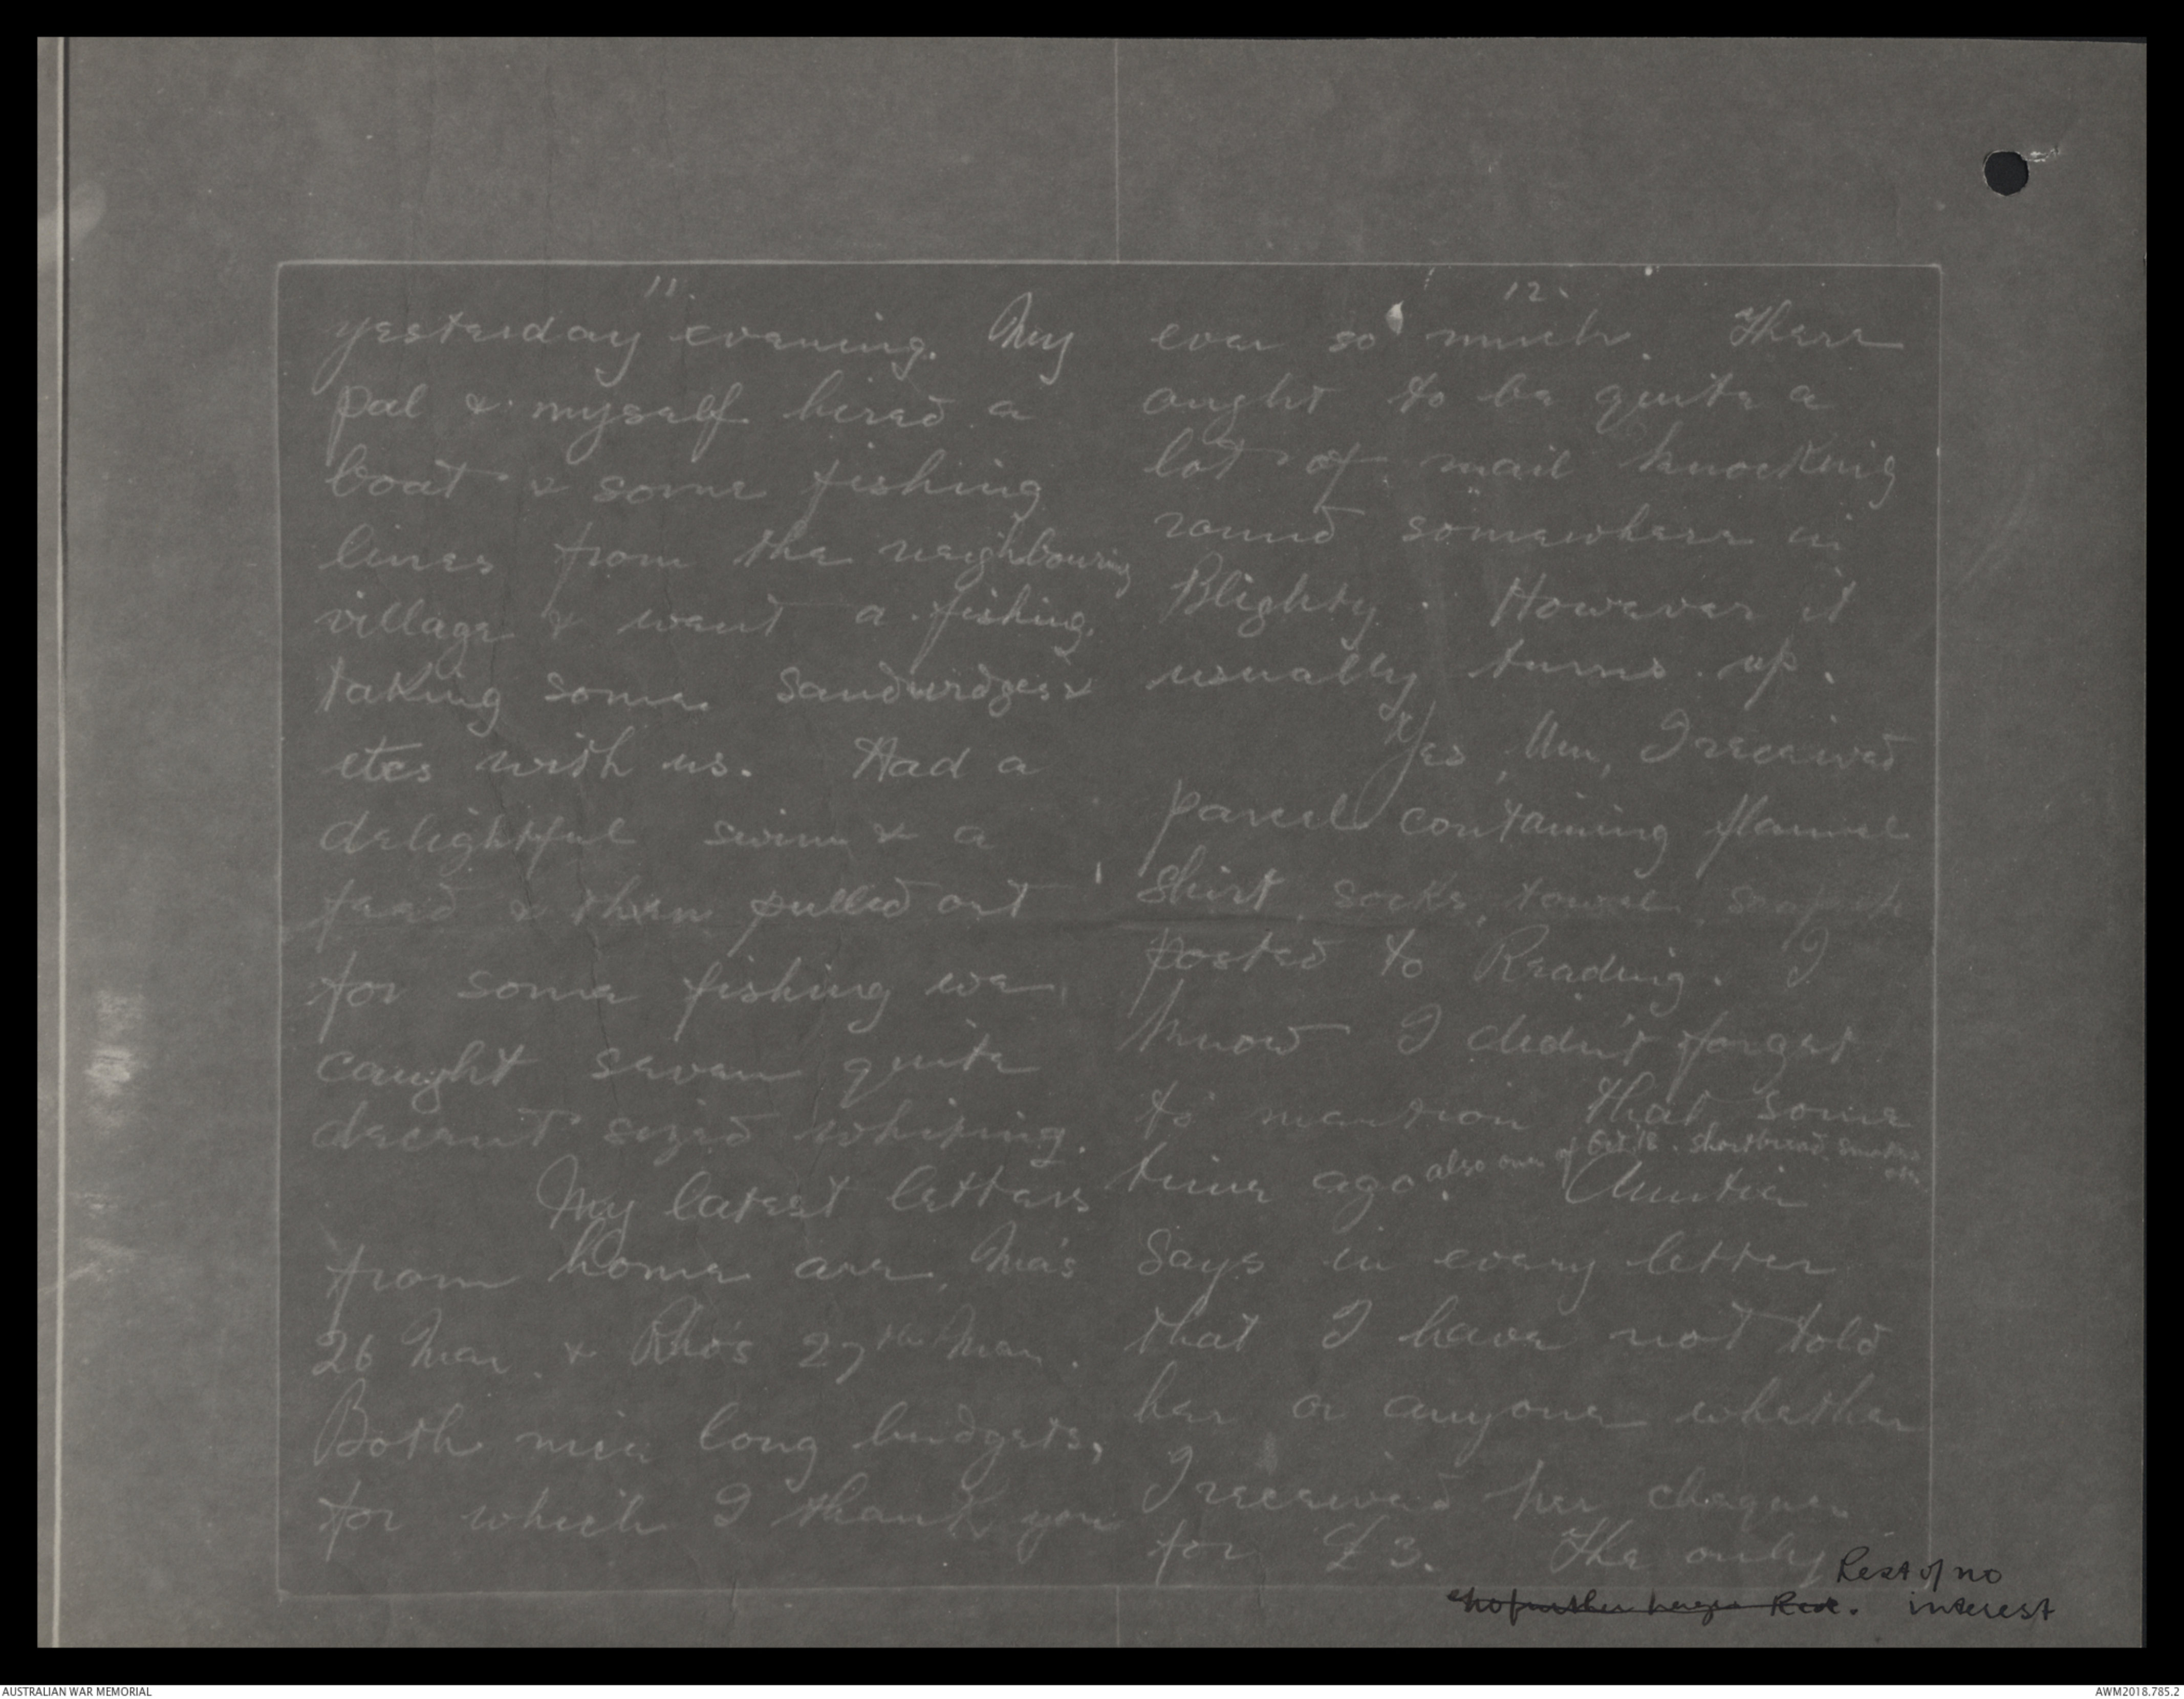 11.
yesterday evening. My
pal & myself hired a
boat & some fishing
lines from the neighbouring
village & went a fishing,
taking some sandwidges &
etcs with us. Had a
delightful swim & a
feed & then pulled out
for some fishing we
caught seven quite
decent sized whiting.
My latest letters
from home are, Ma's
26 Mar. & Rho's 27th Mar.
Both nice long budgets,
for which I thank you
12.
ever so much. There
ought to be quite a
lot of mail knocking
round somewhere in
Blighty. However it
usually turns up.
Yes, Mum, I received
parcel containing flannel
shirt, socks, towel, soap etc
posted to Reading. I
know I didn't forget
to mention that some
time ago. also one of Oct 18. shortbread, smokes etc.
Auntie
says in every letter
that I have not told
her or anyone whether
I received her cheque
for £3. The only
Rest of no
interest
AUSTRALIAN WAR MEMORIAL
AWM2018.785.2